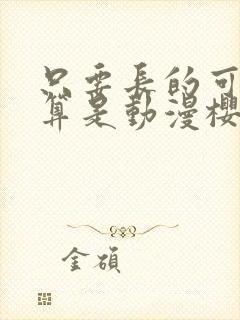 只要長的可
算是動漫櫻
金碩